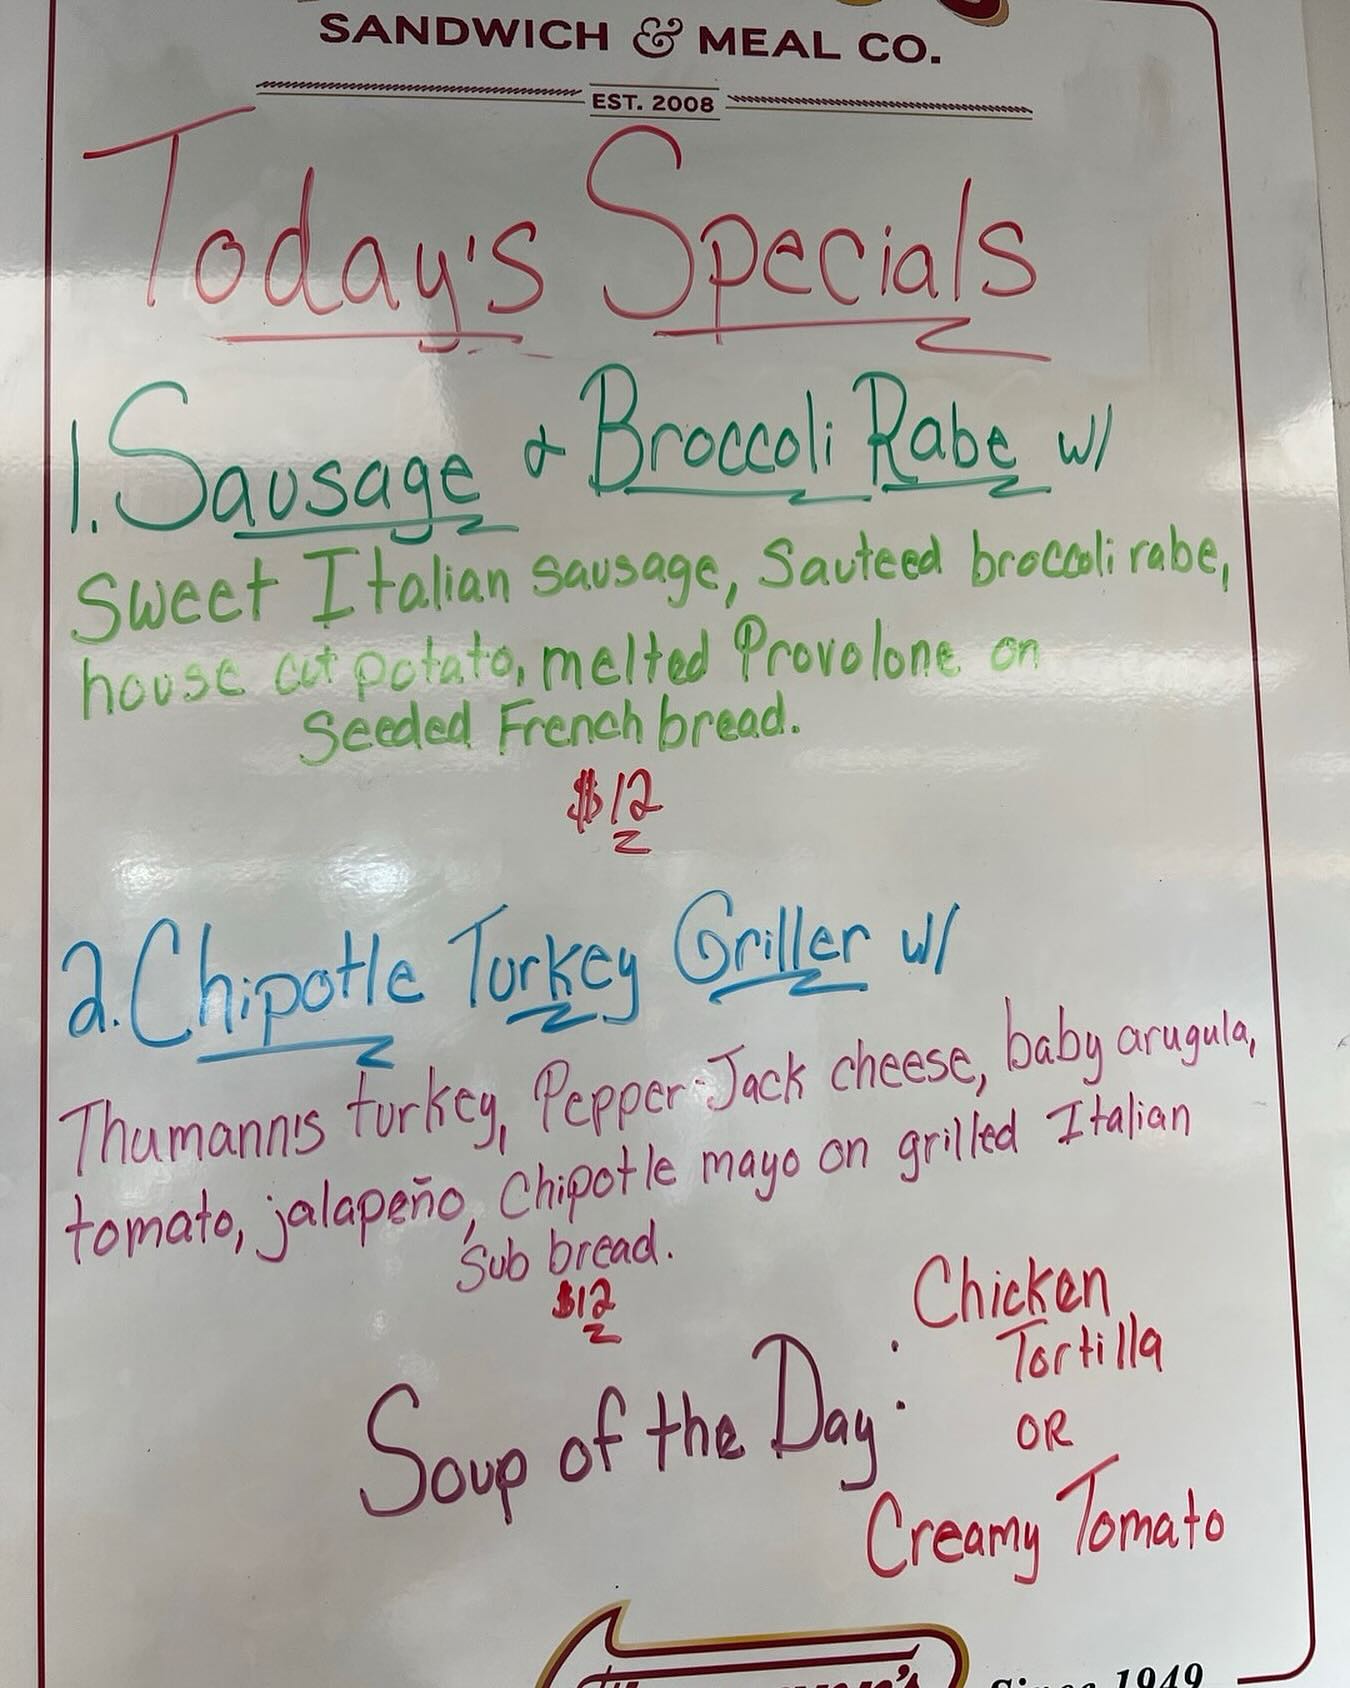 SANDWICH & MEAL CO.
EST. 2008
Today's Specials
1. Sausage & Broccoli Rabe w/
Sweet Italian sausage, Sauteed broccoli rabe,
house cut potato, melted Provolone on
Seeded French bread.
$12
2. Chipotle Turkey Griller w/
Thumann's turkey, Pepper-Jack cheese, baby arugula,
tomato, jalapeño, Chipotle mayo on grilled Italian
Sub bread.
$12
Soup of the Day:
Chicken
Tortilla
OR
Creamy Tomato
Since 1949